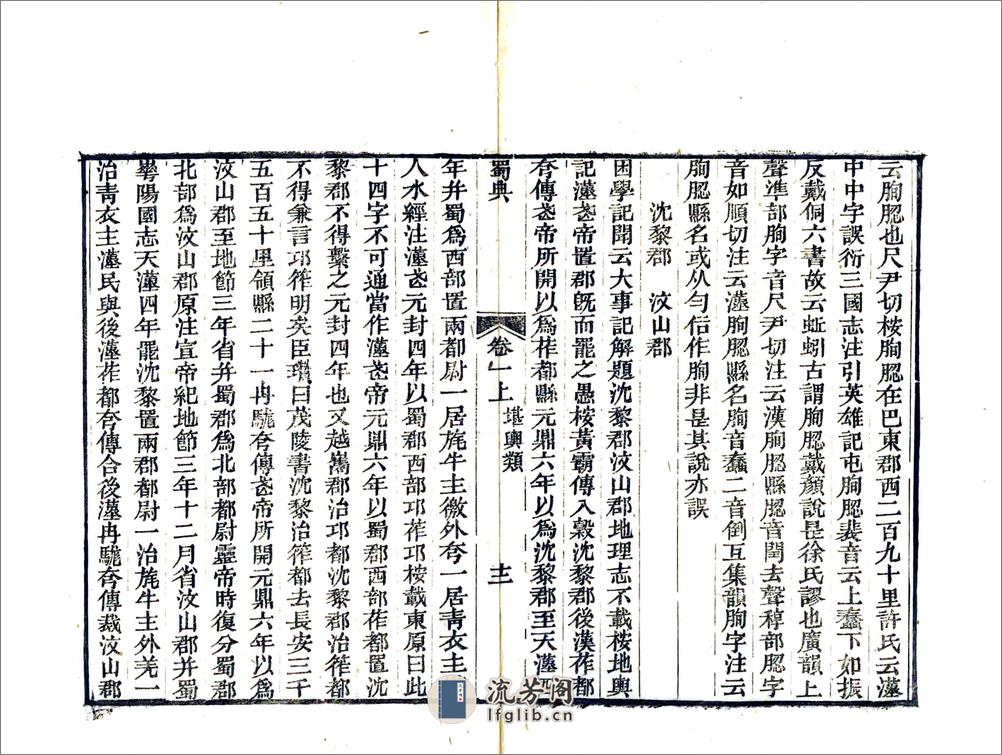 云朐䏰也尺尹切桉朐䏰在巴東郡西二百九十里許氏云漢
中中字誤衍三國志注引英雄記屯朐䏰裴音云上蠢下如振
反戴侗六書故云蚯蚓古謂朐䏰戴顏說是徐氏謬也廣韻上
聲準部朐字音尺尹切注云漢朐䏰縣䏰音閏去聲稕部䏰字
音如順切注云漢朐䏰縣名朐音蠢二音倒互集韻朐字注云
朐䏰縣名或从匀俗作朐非是其說亦誤
沈黎郡 汶山郡
困學記聞云大事記解題沈黎郡汶山郡地理志不載桉地輿
記漢武帝置郡旣而罷之愚桉黃霸傳入穀沈黎郡後漢莋都
夷傳武帝所開以爲莋都縣元鼎六年以爲沈黎郡至天漢四
蜀典 卷一上 堪輿類 十二
年并蜀爲西部置兩都尉一居旄牛主徼外夷一居靑衣主漢
人水經注漢武元封四年以蜀郡西部邛莋邛桉戴東原曰此
十四字不可通當作漢武帝元鼎六年以蜀郡西部莋都置沈
黎郡不得繫之元封四年也又越嶲郡治邛都沈黎郡治筰都
不得兼言邛筰明矣臣瓚曰茂陵書沈黎治筰都去長安三千
五百五十里領縣二十一冉駹夷傳武帝所開元鼎六年以爲
汶山郡至地節三年省并蜀郡爲北部都尉靈帝時復分蜀郡
北部爲汶山郡原注宣帝紀地節三年十二月省汶山郡并蜀
華陽國志天漢四年罷沈黎置兩郡都尉一治旄牛主外羌一
治靑衣主漢民與後漢莋都夷傳合後漢冉駹夷傳裁汶山郡
流芳阁
lfglib.cn